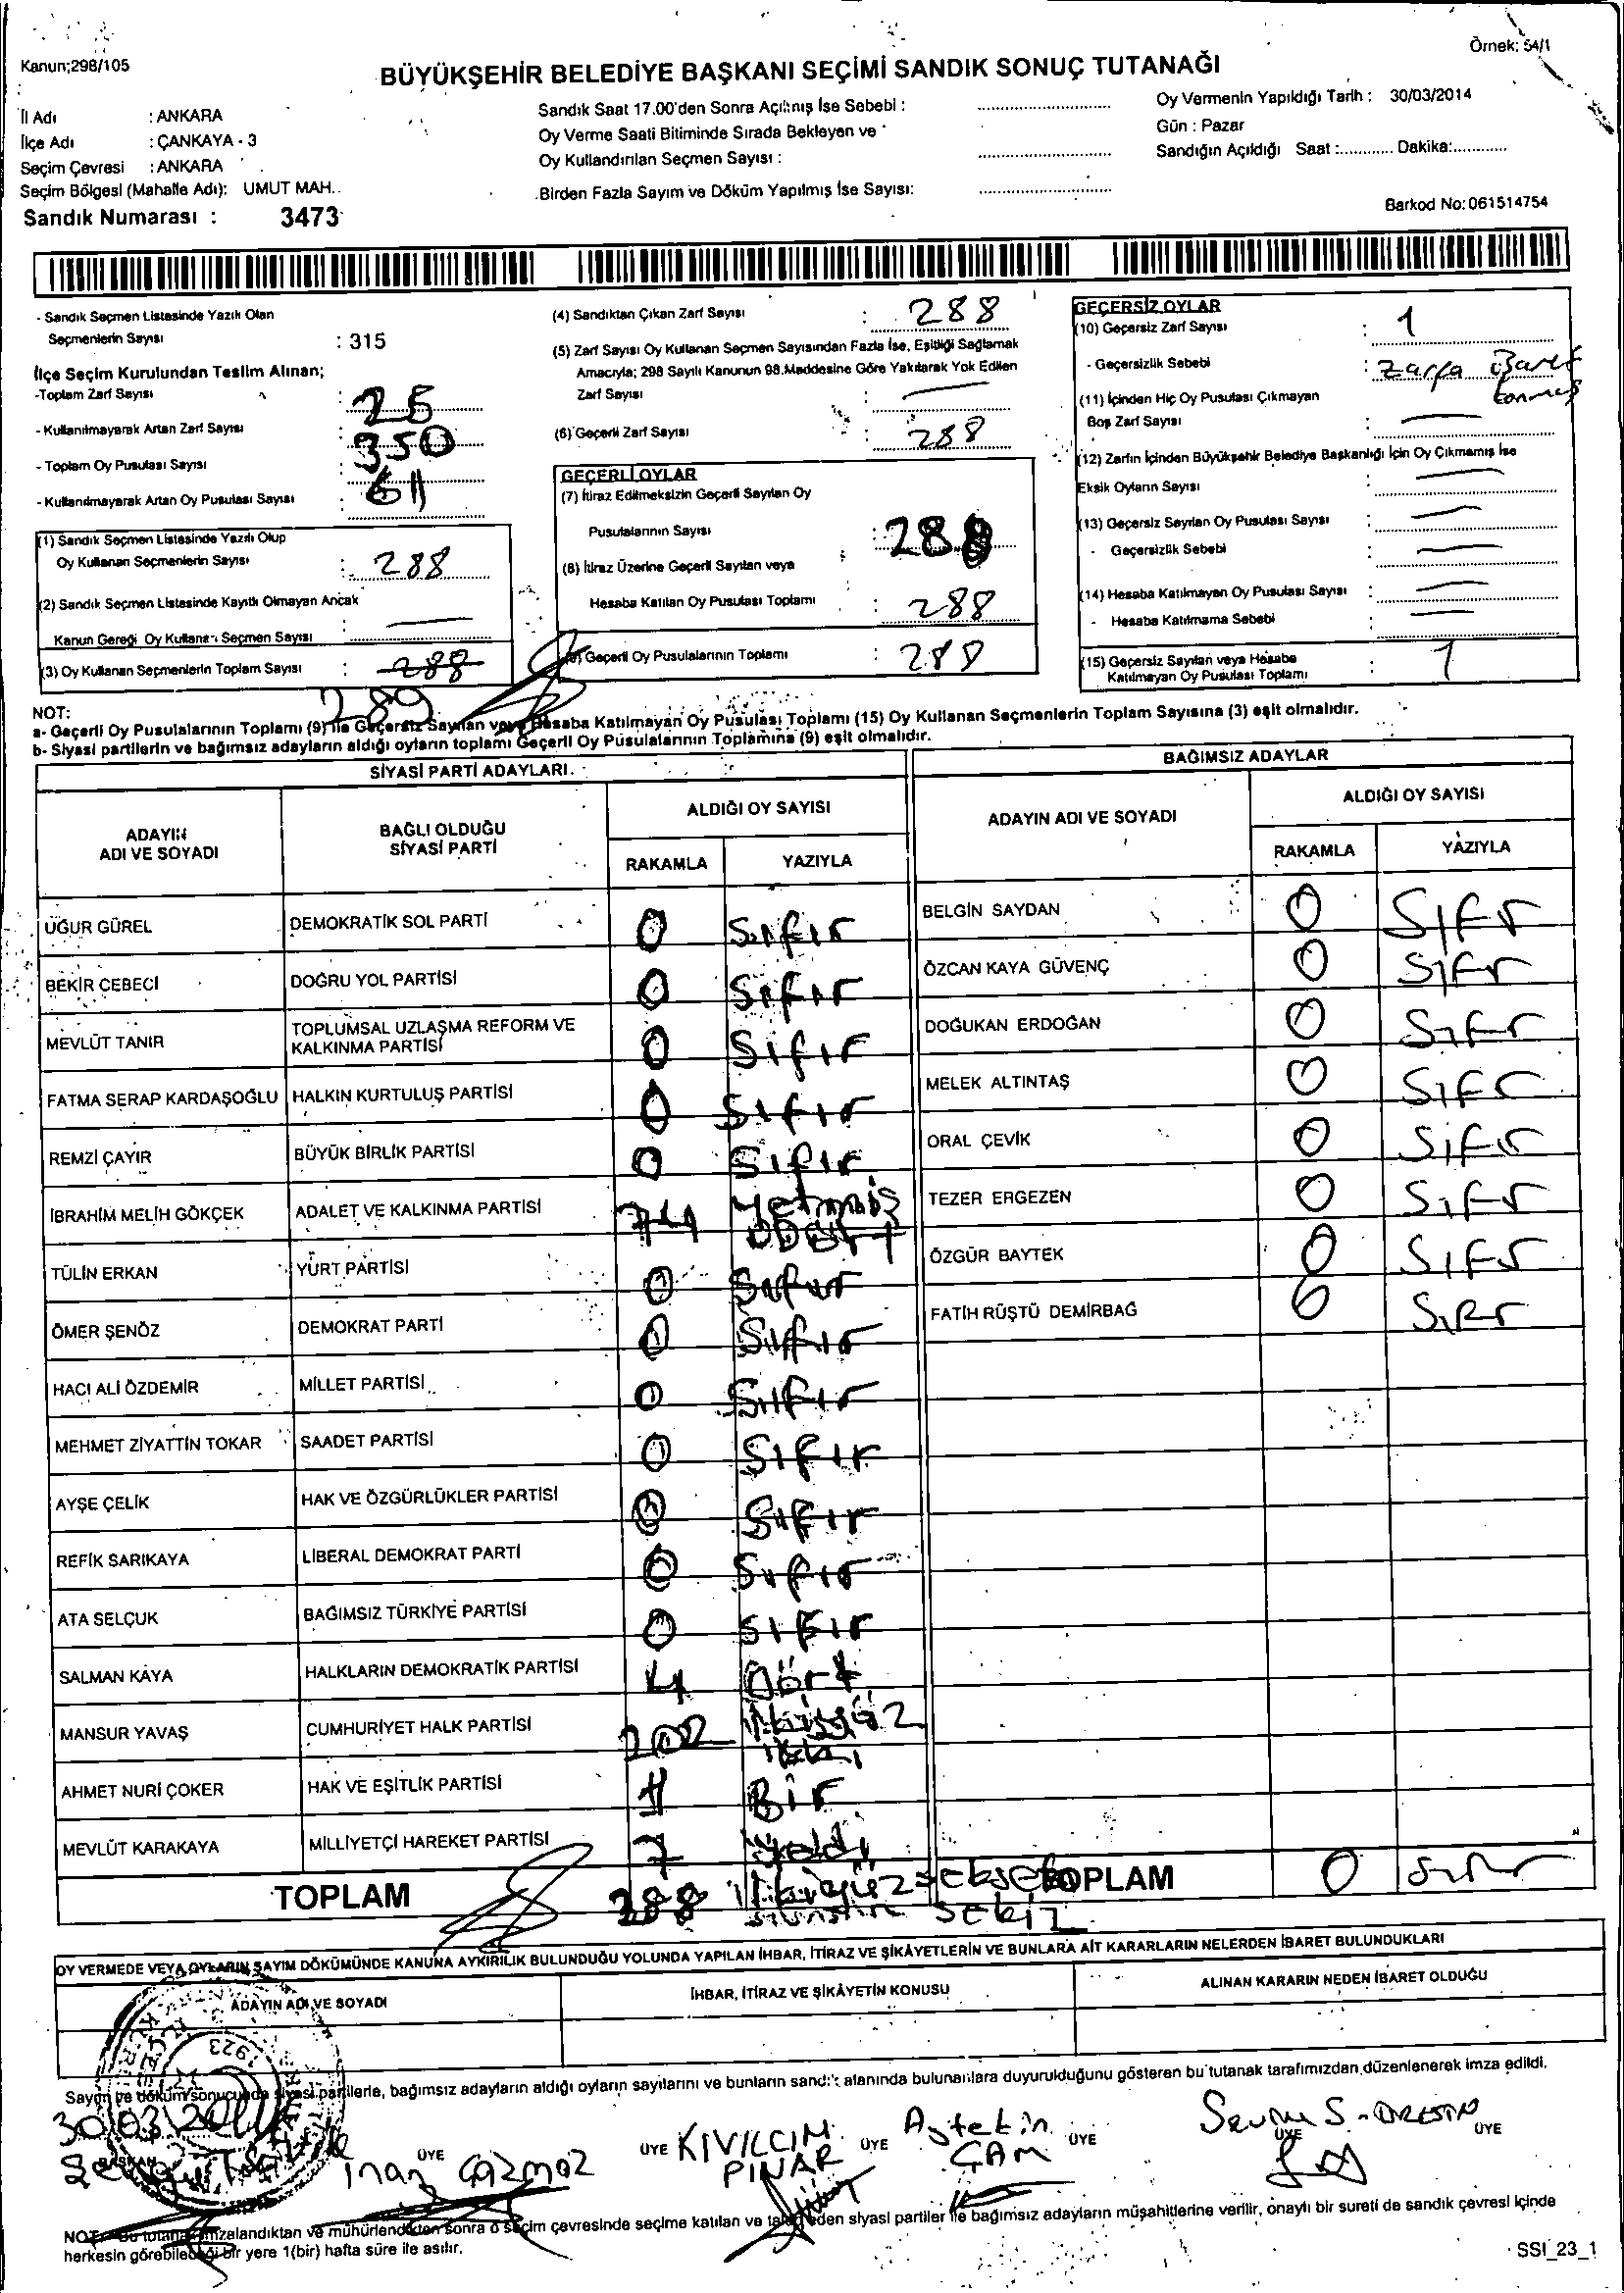 Kanun;298/105
Örnek: 54/1
BÜYÜKŞEHİR BELEDİYE BAŞKANI SEÇİMİ SANDIK SONUÇ TUTANAĞI
İl Adı : ANKARA
İlçe Adı : ÇANKAYA - 3
Seçim Çevresi : ANKARA
Seçim Bölgesi (Mahalle Adı): UMUT MAH.
Sandık Numarası : 3473
Sandık Saat 17.00'den Sonra Açılmış İse Sebebi :
Oy Verme Saati Bitiminde Sırada Bekleyen ve
Oy Kullandırılan Seçmen Sayısı :
Birden Fazla Sayım ve Döküm Yapılmış İse Sayısı:
Oy Vermenin Yapıldığı Tarih : 30/03/2014
Gün : Pazar
Sandığın Açıldığı Saat :............ Dakika:............
Barkod No: 061514754
- Sandık Seçmen Listesinde Yazılı Olan
Seçmenlerin Sayısı : 315
İlçe Seçim Kurulundan Teslim Alınan;
-Toplam Zarf Sayısı : 25
- Kullanılmayarak Artan Zarf Sayısı : 350
- Toplam Oy Pusulası Sayısı :
- Kullanılmayarak Artan Oy Pusulası Sayısı 611
(1) Sandık Seçmen Listesinde Yazılı Olup
Oy Kullanan Seçmenlerin Sayısı : 288
(2) Sandık Seçmen Listesinde Kayıtlı Olmayan Ancak
Kanun Gereği Oy Kullanan Seçmen Sayısı : —
(3) Oy Kullanan Seçmenlerin Toplam Sayısı : 288
289
(4) Sandıktan Çıkan Zarf Sayısı : 288
(5) Zarf Sayısı Oy Kullanan Seçmen Sayısından Fazla İse, Eşitliği Sağlamak
Amacıyla; 298 Sayılı Kanunun 98.Maddesine Göre Yakılarak Yok Edilen
Zarf Sayısı : —
(6) Geçerli Zarf Sayısı : 288
GEÇERLİ OYLAR
(7) İtiraz Edilmeksizin Geçerli Sayılan Oy
Pusulalarının Sayısı : 288
(8) İtiraz Üzerine Geçerli Sayılan veya
Hesaba Katılan Oy Pusulası Toplamı : 288
(9) Geçerli Oy Pusulalarının Toplamı : 288
GEÇERSİZ OYLAR
(10) Geçersiz Zarf Sayısı : 1
- Geçersizlik Sebebi : Zarfa İşaret
konmuş
(11) İçinden Hiç Oy Pusulası Çıkmayan
Boş Zarf Sayısı : —
(12) Zarfın İçinden Büyükşehir Belediye Başkanlığı İçin Oy Çıkmamış İse
Eksik Oyların Sayısı : —
(13) Geçersiz Sayılan Oy Pusulası Sayısı : —
- Geçersizlik Sebebi : —
(14) Hesaba Katılmayan Oy Pusulası Sayısı : —
- Hesaba Katılmama Sebebi : —
(15) Geçersiz Sayılan veya Hesaba
Katılmayan Oy Pusulası Toplamı : 1
NOT:
a- Geçerli Oy Pusulalarının Toplamı (9) ile Geçersiz Sayılan veya Hesaba Katılmayan Oy Pusulası Toplamı (15) Oy Kullanan Seçmenlerin Toplam Sayısına (3) eşit olmalıdır.
b- Siyasi partilerin ve bağımsız adayların aldığı oyların toplamı Geçerli Oy Pusulalarının Toplamına (9) eşit olmalıdır.
SİYASİ PARTİ ADAYLARI
ADAYIN ADI VE SOYADI BAĞLI OLDUĞU SİYASİ PARTİ ALDIĞI OY SAYISI
RAKAMLA YAZIYLA
UĞUR GÜREL DEMOKRATİK SOL PARTİ 0 Sıfır
BEKİR CEBECİ DOĞRU YOL PARTİSİ 0 Sıfır
MEVLÜT TANIR TOPLUMSAL UZLAŞMA REFORM VE KALKINMA PARTİSİ 0 Sıfır
FATMA SERAP KARDAŞOĞLU HALKIN KURTULUŞ PARTİSİ 0 Sıfır
REMZİ ÇAYIR BÜYÜK BİRLİK PARTİSİ 0 Sıfır
İBRAHİM MELİH GÖKÇEK ADALET VE KALKINMA PARTİSİ 74 Yetmiş DÖRT
TÜLİN ERKAN YURT PARTİSİ 0 Sıfır
ÖMER ŞENÖZ DEMOKRAT PARTİ 0 Sıfır
HACI ALİ ÖZDEMİR MİLLET PARTİSİ 0 Sıfır
MEHMET ZİYATTİN TOKAR SAADET PARTİSİ 0 Sıfır
AYŞE ÇELİK HAK VE ÖZGÜRLÜKLER PARTİSİ 0 Sıfır
REFİK SARIKAYA LİBERAL DEMOKRAT PARTİ 0 Sıfır
ATA SELÇUK BAĞIMSIZ TÜRKİYE PARTİSİ 0 Sıfır
SALMAN KAYA HALKLARIN DEMOKRATİK PARTİSİ 4 Dört
MANSUR YAVAŞ CUMHURİYET HALK PARTİSİ 202 ikiyüz iki
AHMET NURİ ÇOKER HAK VE EŞİTLİK PARTİSİ 1 Bir
MEVLÜT KARAKAYA MİLLİYETÇİ HAREKET PARTİSİ 7 Yedi
TOPLAM 288 ikiyüzseksen sekiz
BAĞIMSIZ ADAYLAR
ADAYIN ADI VE SOYADI ALDIĞI OY SAYISI
RAKAMLA YAZIYLA
BELGİN SAYDAN 0 Sıfır
ÖZCAN KAYA GÜVENÇ 0 Sıfır
DOĞUKAN ERDOĞAN 0 Sıfır
MELEK ALTINTAŞ 0 Sıfır
ORAL ÇEVİK 0 Sıfır
TEZER ERGEZEN 0 Sıfır
ÖZGÜR BAYTEK 0 Sıfır
FATİH RÜŞTÜ DEMİRBAĞ 0 Sıfır
TOPLAM 0 Sıfır
OY VERMEDE VEYA OYLARIN SAYIM DÖKÜMÜNDE KANUNA AYKIRILIK BULUNDUĞU YOLUNDA YAPILAN İHBAR, İTİRAZ VE ŞİKÂYETLERİN VE BUNLARA AİT KARARLARIN NELERDEN İBARET BULUNDUKLARI
ADAYIN ADI VE SOYADI İHBAR, İTİRAZ VE ŞİKÂYETİN KONUSU ALINAN KARARIN NEDEN İBARET OLDUĞU
1923
Sayım ve döküm sonucunda siyasi partilerle, bağımsız adayların aldığı oyların sayılarını ve bunların sandık alanında bulunanlara duyurulduğunu gösteren bu tutanak tarafımızdan düzenlenerek imza edildi.
30.03.2014
BAŞKAN ÜYE ÜYE ÜYE ÜYE ÜYE ÜYE
inan KIVILCIM PINAR Aytekin ÇAM
NOT: Bu tutanak imzalandıktan ve mühürlendikten sonra o seçim çevresinde seçime katılan ve talep eden siyasi partiler ile bağımsız adayların müşahitlerine verilir, onaylı bir sureti de sandık çevresi içinde
herkesin görebileceği bir yere 1(bir) hafta süre ile asılır.
SSI_23_1